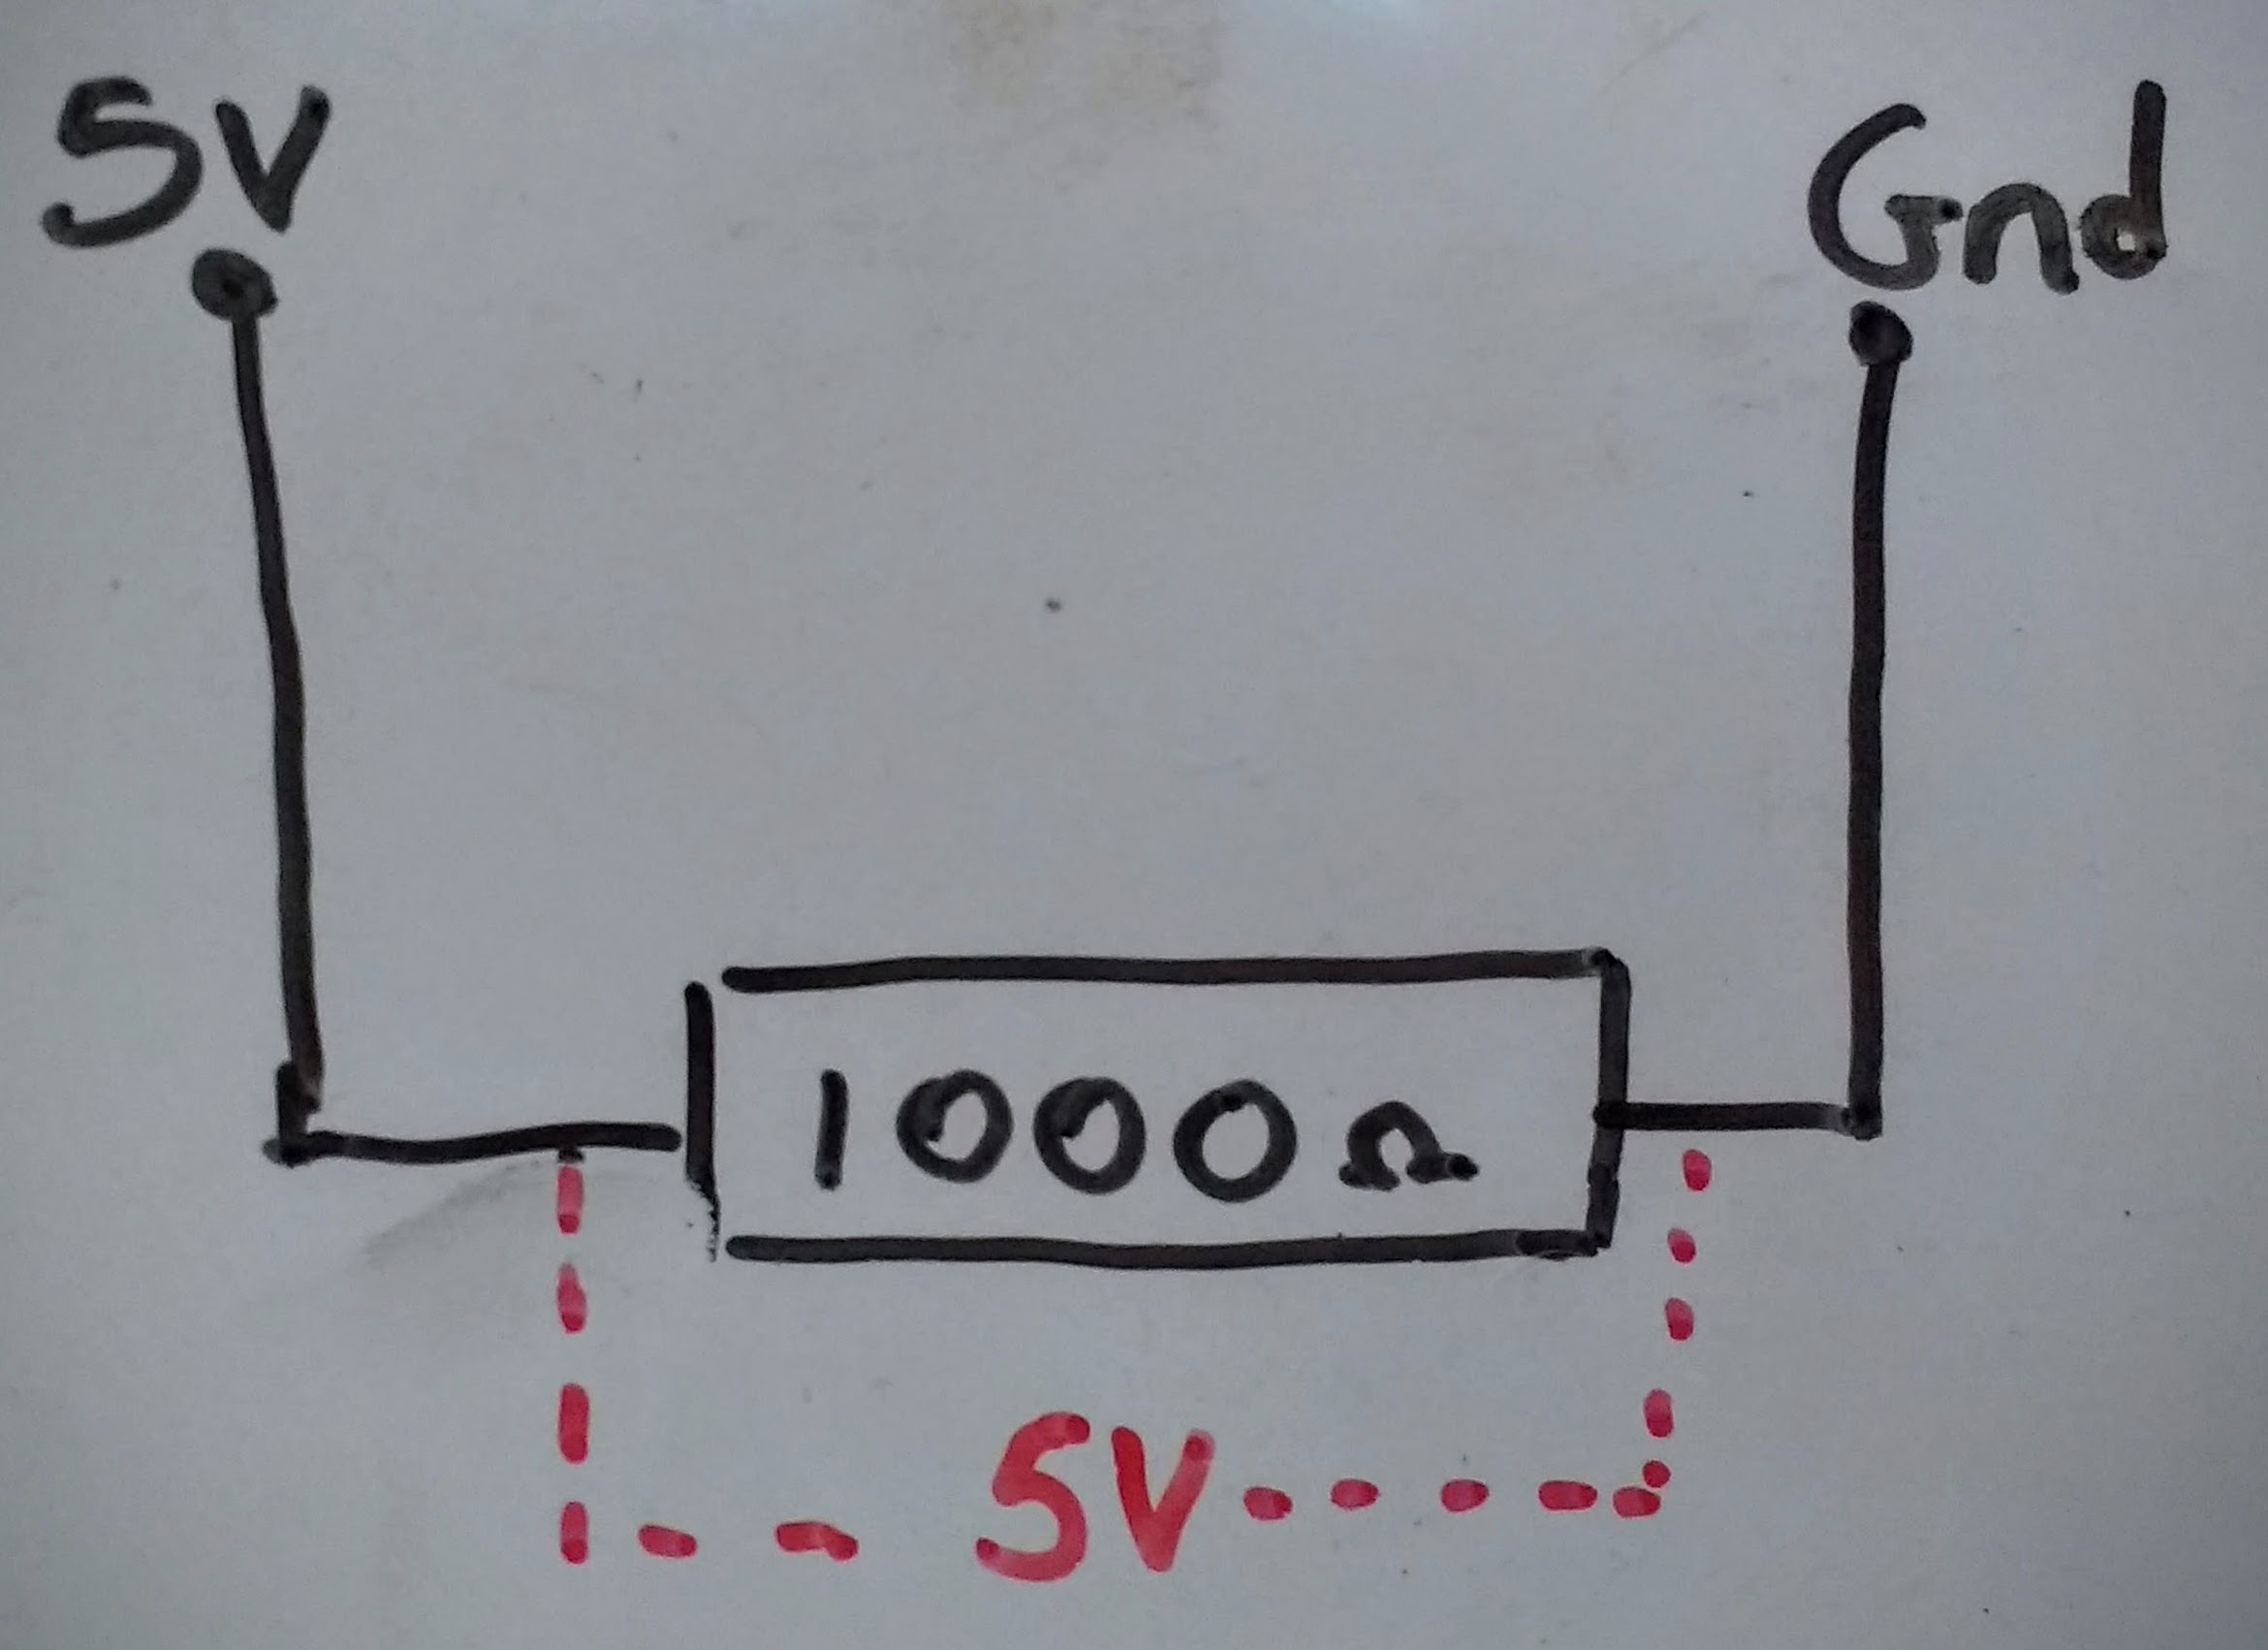 5V
Gnd
1000Ω
5V